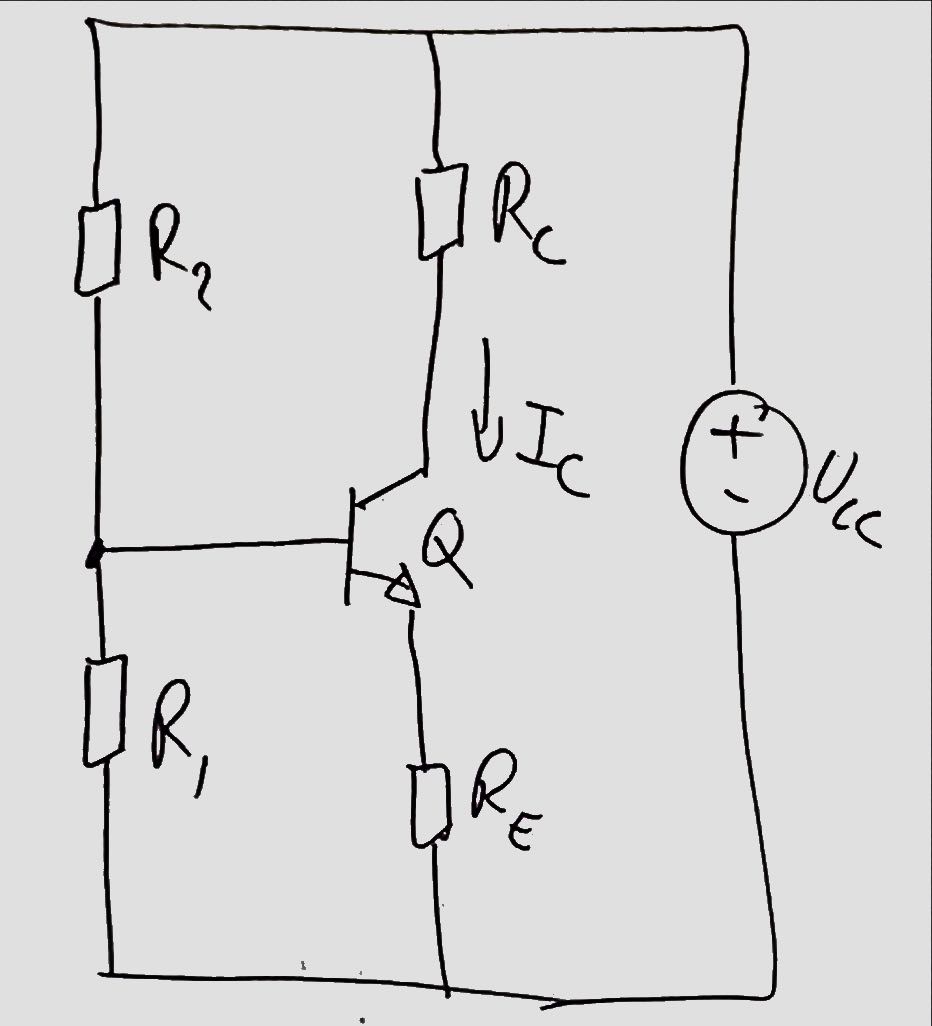 R_C
R_2
I_C
+
-
U_CC
Q
R_1
R_E